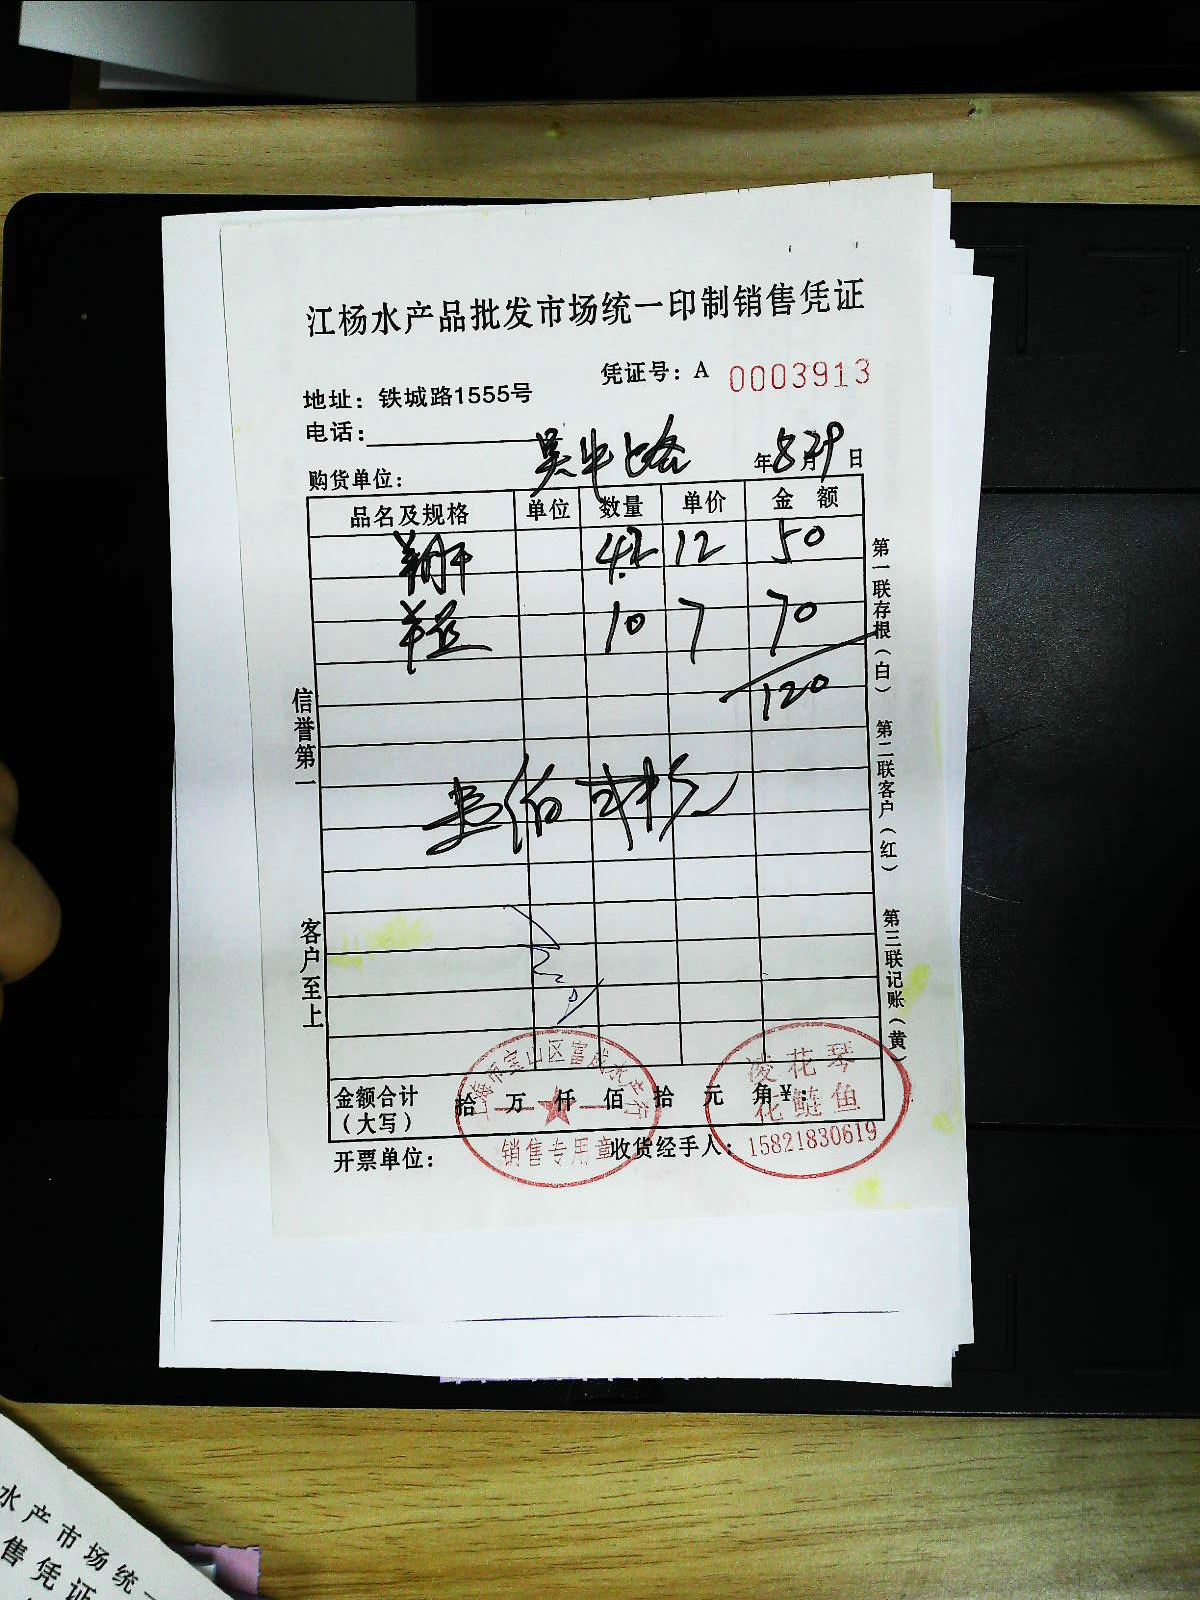 江杨水产品批发市场统一印制销售凭证
凭证号：A 0003913
地址：铁城路1555号
电话：
购货单位： 年8月29日
品名及规格 单位 数量 单价 金 额
4.2 12 50
10 7 70
120
信誉第一
客户至上
第一联存根（白）
第二联客户（红）
第三联记账（黄）
金额合计（大写） 拾 万 仟 佰 拾 元 角 ¥：
开票单位： 收货经手人：
上海市宝山区富成水产行
销售专用章
凌花琴
花鲢鱼
15821830619
水产市场统一
售凭证